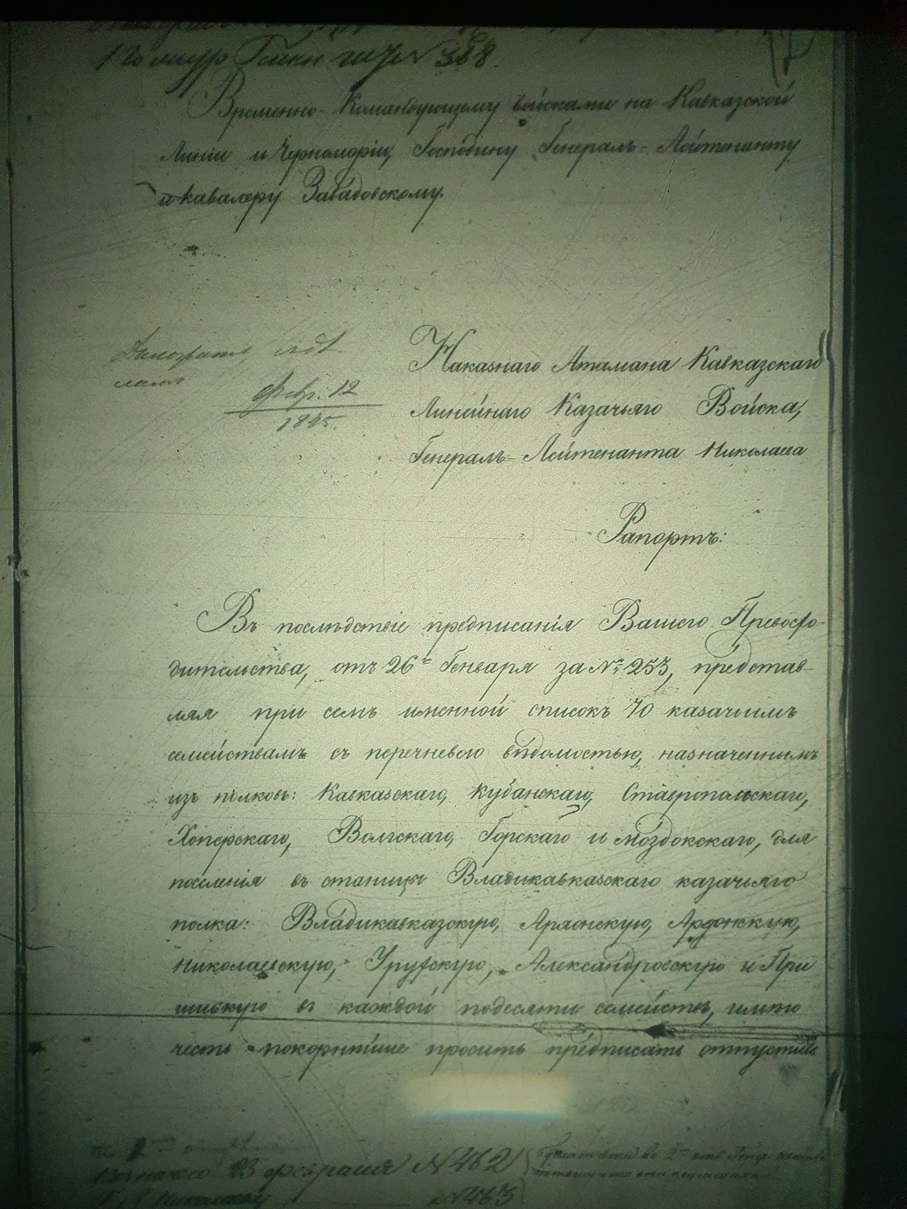 № 368.
17
Временно-Командующему войсками на Кавказской
Линіи и Черноморіи, Господину Генералъ-Лейтенанту
и Кавалеру Завадовскому.
Февр. 12
1845.
Наказнаго Атамана Кавказскаго
Линейнаго Казачьяго Войска,
Генералъ-Лейтенанта Николаева
Рапортъ:
Въ послѣдствіе предписанія Вашего Превосхо-
дительства, отъ 26го Генваря за № 253, представ-
ляя при семъ именной списокъ 70 казачьимъ
семействамъ съ перечневою вѣдомостью, назначеннымъ
изъ полковъ: Кавказскаго, Кубанскаго, Ставропольскаго,
Хоперскаго, Волгскаго, Горскаго и Моздокскаго, для
поселенія въ станицы Владикавказскаго казачьяго
полка: Владикавказскую, Архонскую, Ардонскую,
Николаевскую, Урухскую, Александровскую и При
шибскую въ каждой подесяти семействъ, имѣю
честь покорнѣйше просить предписать отпустить
23 февраля № 462
Николаеву № 463